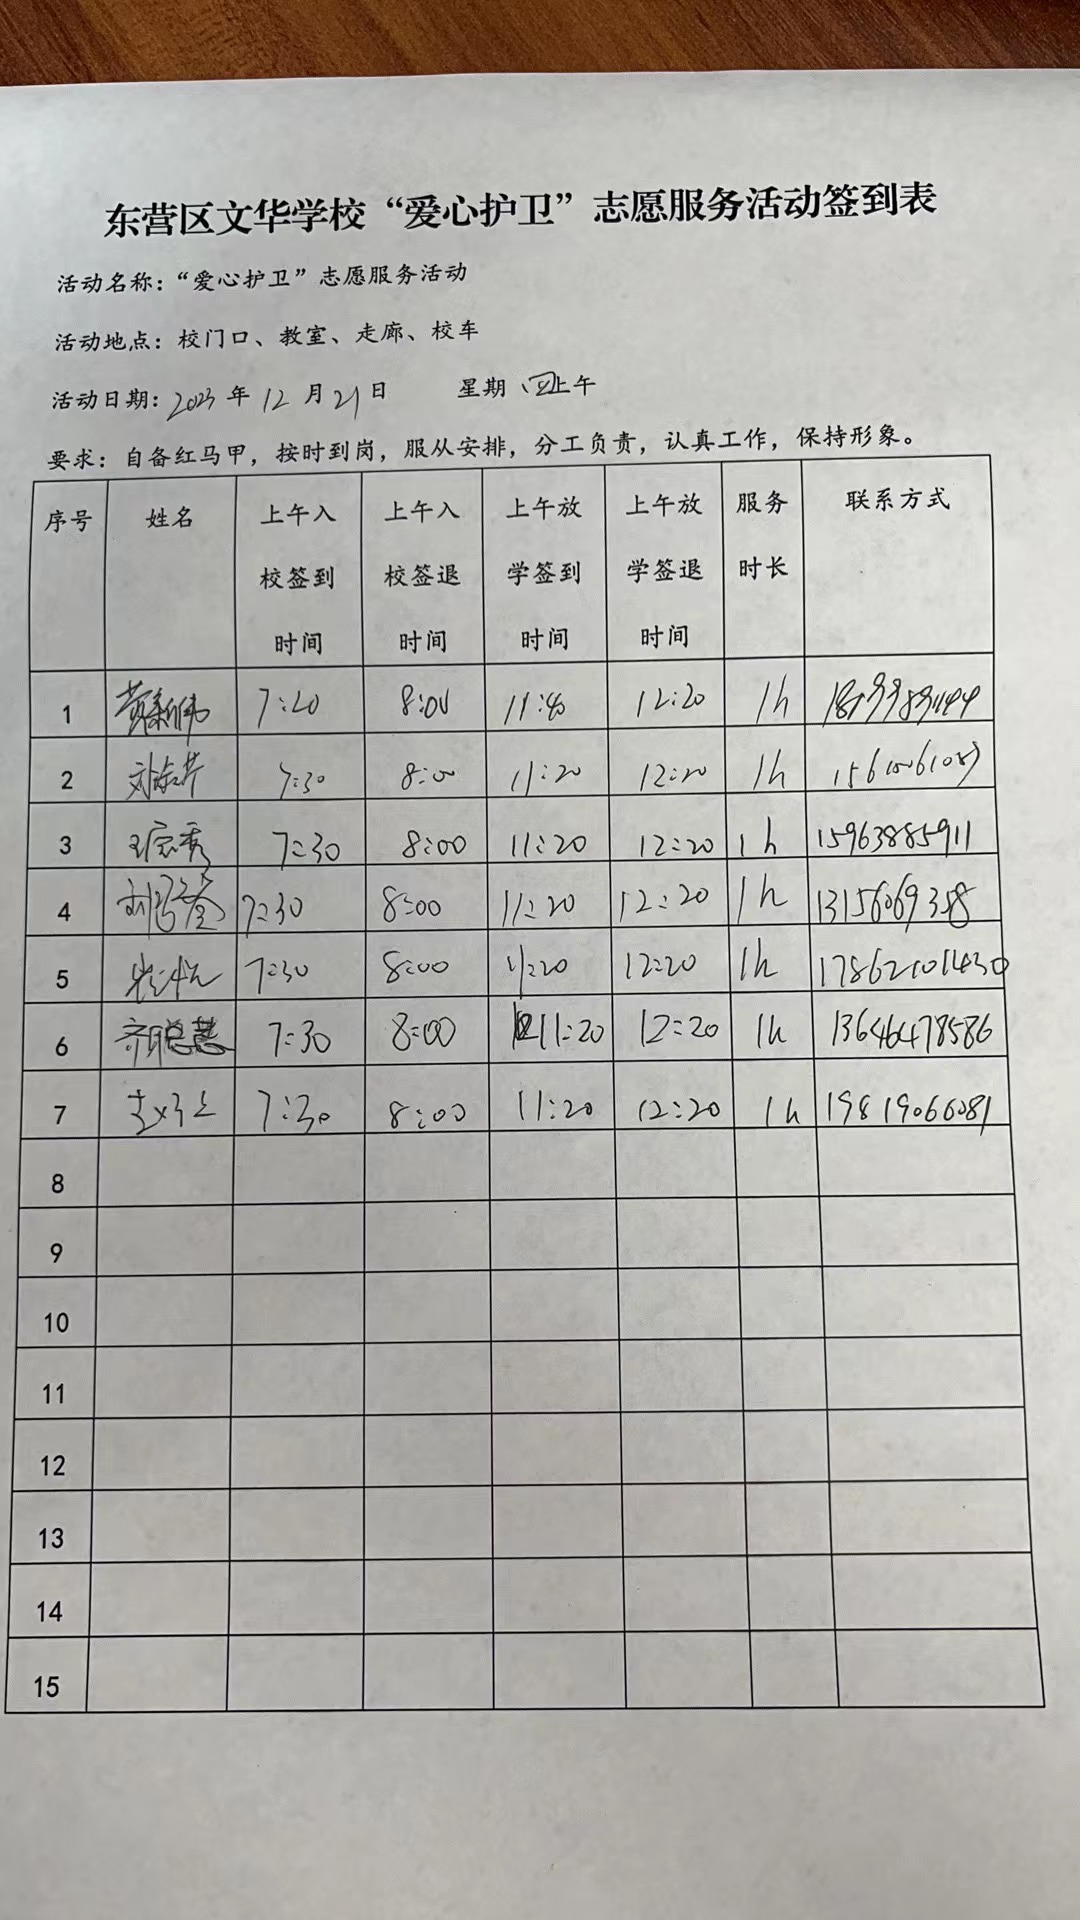 东营区文华学校“爱心护卫”志愿服务活动签到表
活动名称：“爱心护卫”志愿服务活动
活动地点：校门口、教室、走廊、校车
活动日期：2023年12月21日 星期四上午
要求：自备红马甲，按时到岗，服从安排，分工负责，认真工作，保持形象。
序号 姓名 上午入校签到时间 上午入校签退时间 上午放学签到时间 上午放学签退时间 服务时长 联系方式
1 7:20 8:00 11:40 12:20 1h
2 7:30 8:00 11:20 12:20 1h
3 7:30 8:00 11:20 12:20 1h 15963885911
4 7:30 8:00 11:20 12:20 1h 13156069358
5 7:30 8:00 11:20 12:20 1h 17862101430
6 齐聪慧 7:30 8:00 11:20 12:20 1h 13646478586
7 7:30 8:00 11:20 12:20 1h 19819066081
8
9
10
11
12
13
14
15